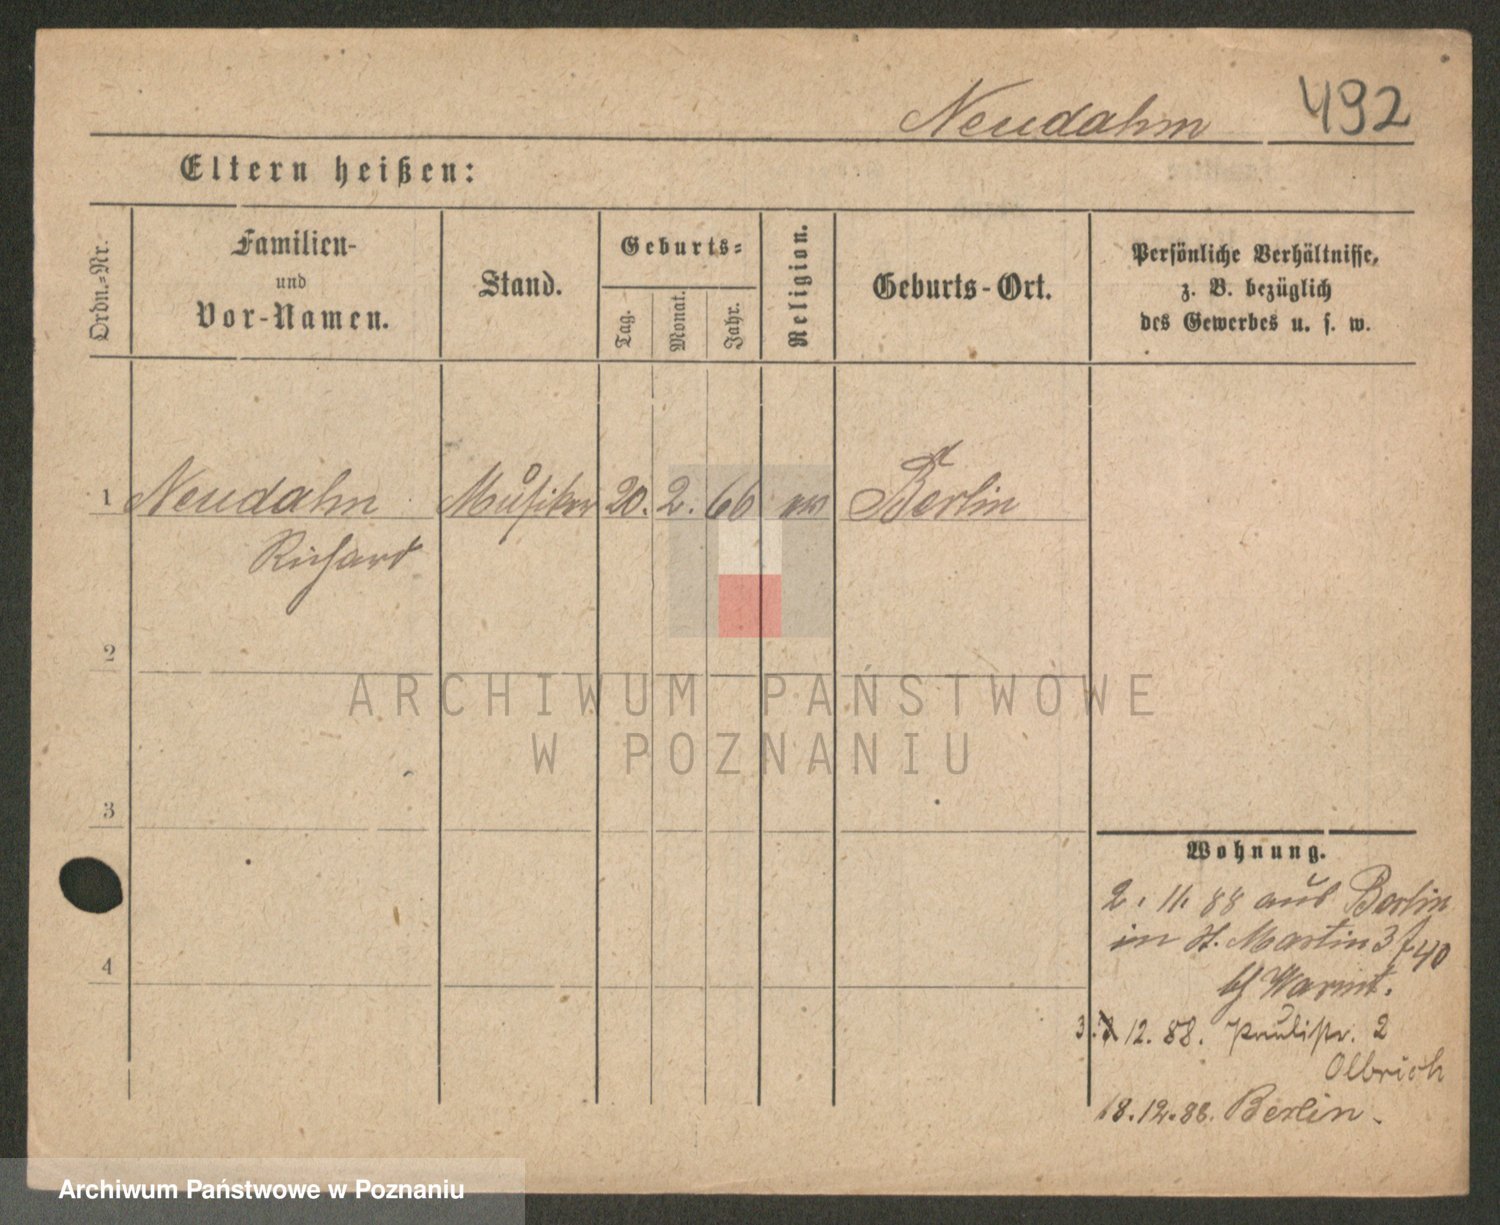 Neudahm 492
Eltern heißen:
Ordn.-Nr.
Familien-
und
Vor-Namen.
Stand.
Geburts-
Tag.
Monat.
Jahr.
Religion.
Geburts-Ort.
Persönliche Verhältnisse,
z. B. bezüglich
des Gewerbes u. s. w.
1 Neudahm Musiker 20. 2. 66 ev Berlin
Richard
2
3
4
Wohnung.
2. 11. 88 aus Berlin
in St. Martin 37/40
b/
3. 12. 88. Paulistr. 2
Olbrich
18.12.88. Berlin.
ARCHIWUM PAŃSTWOWE
W POZNANIU
Archiwum Państwowe w Poznaniu